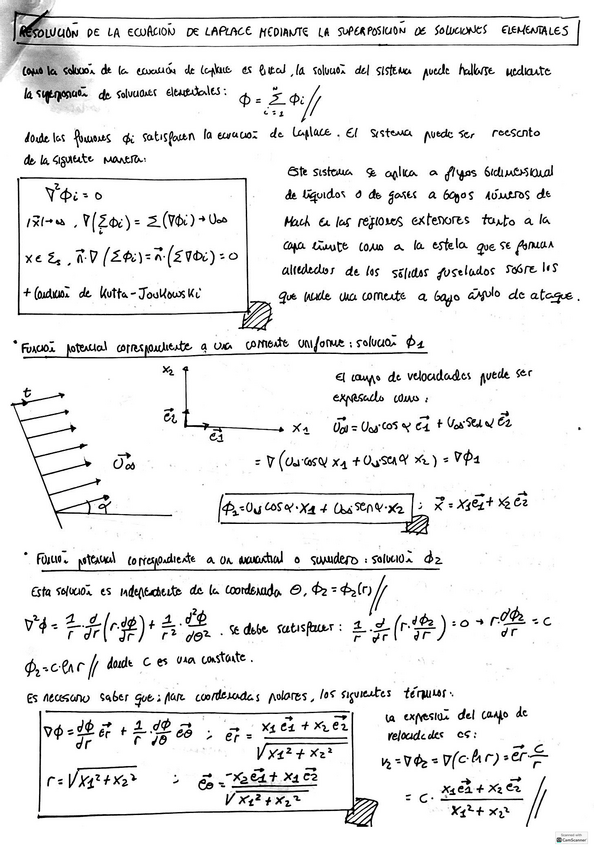 RESOLUCIÓN DE LA ECUACIÓN DE LAPLACE MEDIANTE LA SUPERPOSICIÓN DE SOLUCIONES ELEMENTALES
Como la solución de la ecuación de Laplace es lineal, la solución del sistema puede hallarse mediante
la superposición de soluciones elementales: ϕ = Σ_{i=1}^{N} ϕi //
donde las funciones ϕi satisfacen la ecuación de Laplace. El sistema puede ser reescrito
de la siguiente manera:
∇²ϕi = 0
|x⃗|→∞, ∇(Σ_i ϕi) = Σ(∇ϕi) → U∞
x ∈ Σs, n⃗·∇(Σϕi) = n⃗·(Σ∇ϕi) = 0
+ Condición de Kutta-Joukowski
Este sistema se aplica a flujos bidimensional
de líquidos o de gases a bajos números de
Mach en las regiones exteriores tanto a la
capa límite como a la estela que se forman
alrededor de los sólidos fuselados sobre los
que incide una corriente a bajo ángulo de ataque.
• Función potencial correspondiente a una corriente uniforme: solución ϕ1
t
U⃗∞
α
x2
e⃗2
e⃗1
x1
El campo de velocidades puede ser
expresado como:
U⃗∞ = U∞·cos α e⃗1 + U∞·sen α e⃗2
= ∇(U∞·cos α x1 + U∞·sen α x2) = ∇ϕ1
ϕ1 = U∞ cos α·x1 + U∞ sen α·x2 ; x⃗ = x1e⃗1 + x2 e⃗2
• Función potencial correspondiente a un manantial o sumidero: solución ϕ2
Esta solución es independiente de la coordenada θ, ϕ2 = ϕ2(r) //
∇²ϕ = 1/r · d/dr (r·dϕ/dr) + 1/r² · d²ϕ/dθ² . Se debe satisfacer: 1/r · d/dr (r·dϕ2/dr) = 0 → r·dϕ2/dr = C
ϕ2 = c·ln r // donde C es una constante.
Es necesario saber que; para coordenadas polares, los siguientes términos:
∇ϕ = dϕ/dr e⃗r + 1/r · dϕ/dθ e⃗θ ; e⃗r = (x1 e⃗1 + x2 e⃗2)/√(x1² + x2²)
r = √(x1² + x2²) ; e⃗θ = (-x2e⃗1 + x1 e⃗2)/√(x1² + x2²)
La expresión del campo de
velocidades es:
v2 = ∇ϕ2 = ∇(c·ln r) = e⃗r · C/r
= C · (x1e⃗1 + x2 e⃗2)/(x1² + x2²) //
Scanned with
CamScanner